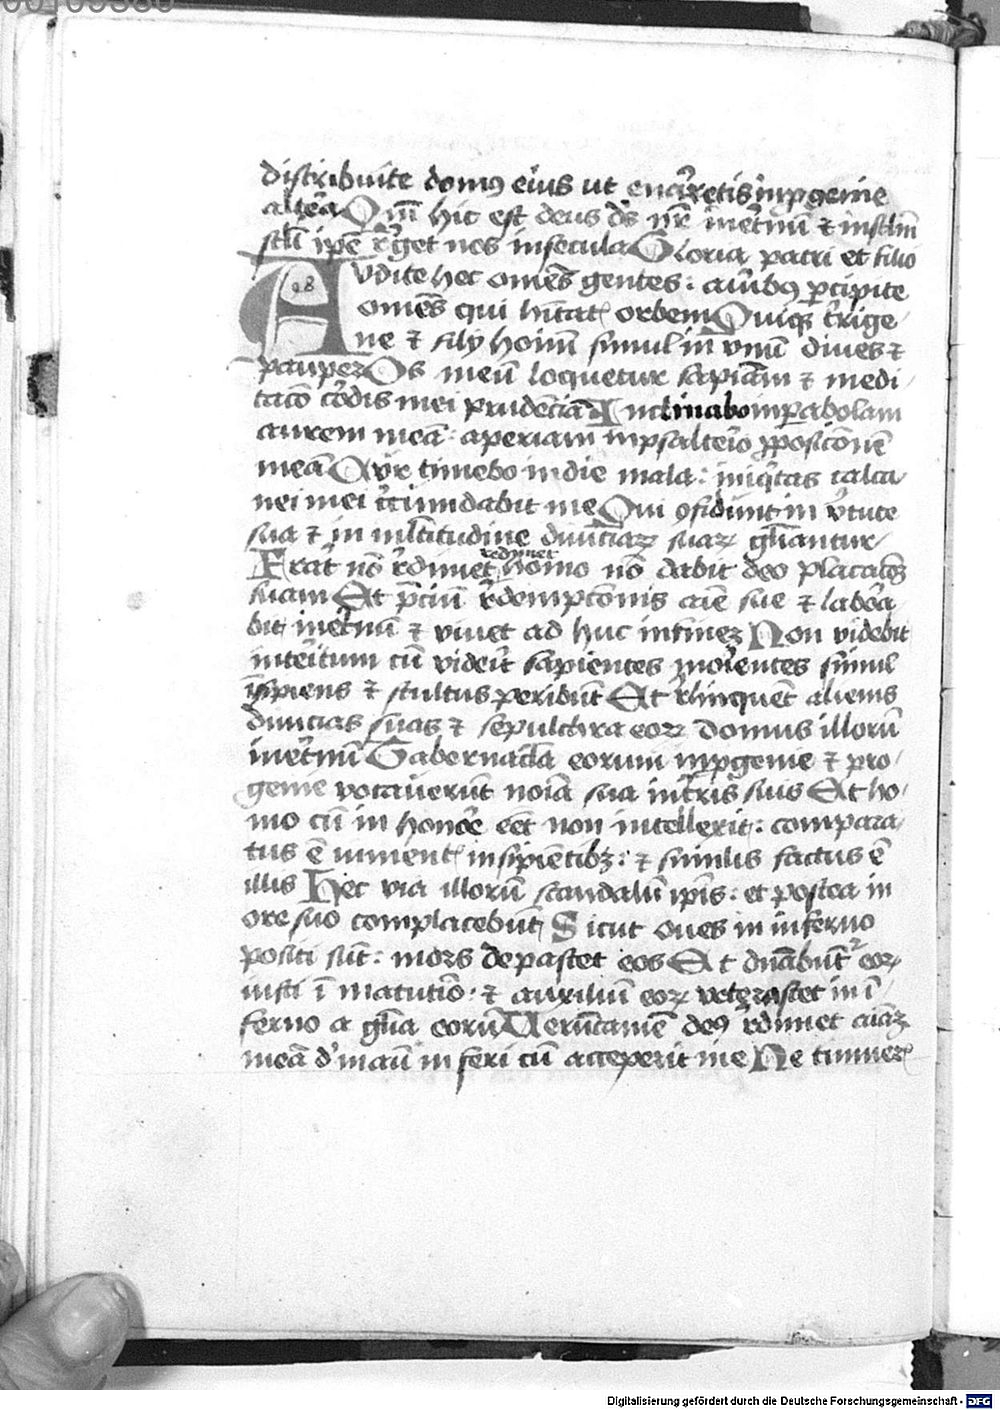 distribuite domꝰ eius ut enarretis in ꝓgenie
alterā Qm̄ hic est deus dẜ nr̄ inet̓nū ⁊ in sclm̄
scli ipē r̓get nos in secula Gloria patri et filio
Audite hec omēs gentes : aurībꝰ p̱cipite
omēs qui hītatꝭ orbem Quiqꝫ t̓rige
ne ⁊ filij hoīm̄ simul in vnū diues ⁊
pauper Os meū loquetur sapiam̄ ⁊ medi
tacō cordis mei prudēciā Inclinabo in parabolam
aurem meā : aperiam in psalterio ꝓposicōnē
meā Cur timebo in die mala : iniq̓tas calca
nei mei c̓cumdabit me Qui ꝯfidunt in v̓tute
sua ⁊ in mltitudine diuiciaꝝ suaꝝ gliantur
Frat̓ nō r̓dimet redimet homo nō dabit deo placacōꝫ
suam Et p̄ciū r̓dempcōnis aīe sue ⁊ labora
bit inet̓nū ⁊ viuet ad huc in finez Non videbit
interitum cū viderit sapientes morientes simul
īsipiens ⁊ stultus peribūt Et r̓linquēt alienis
diuicias suas ⁊ sepultura eoꝝ domus illorū
inet̓nū Tabernacla eorum in ꝓgenie ⁊ pro
genie vocauerūt noīa sua in t̓ris suis Et ho
mo cū in honore eēt non intellexit : compara
tus ē iumentꝭ insipiētibꝫ : ⁊ similis factus ē
illis Hec via illorū scandalū ip̄is : et postea in
ore suo complacebūt Sicut oues in inferno
positi sūt : mors depascet eos Et dn̄abūt̓ eoꝝ
iusti ī matutīo · ⁊ auxiliū eoꝝ veterascet in ī
ferno a glīa eorū Uerūtamē deꝰ r̓dimet aīaꝫ
meā d' manū inferi cū acceperit me Ne timuerꝭ
28
Digitalisierung gefördert durch die Deutsche Forschungsgemeinschaft - DFG